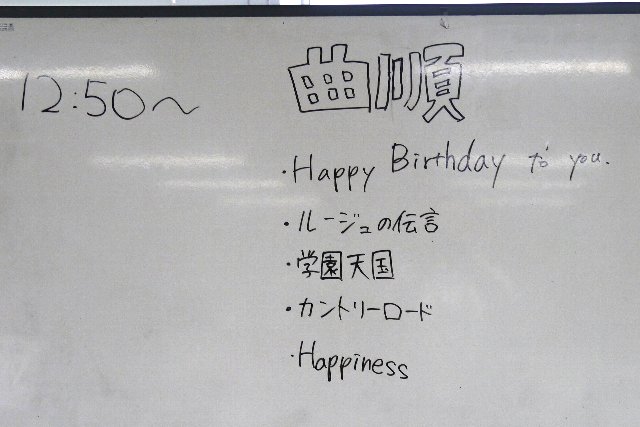 12:50〜
曲順
・Happy Birthday to you.
・ルージュの伝言
・学園天国
・カントリーロード
・Happiness